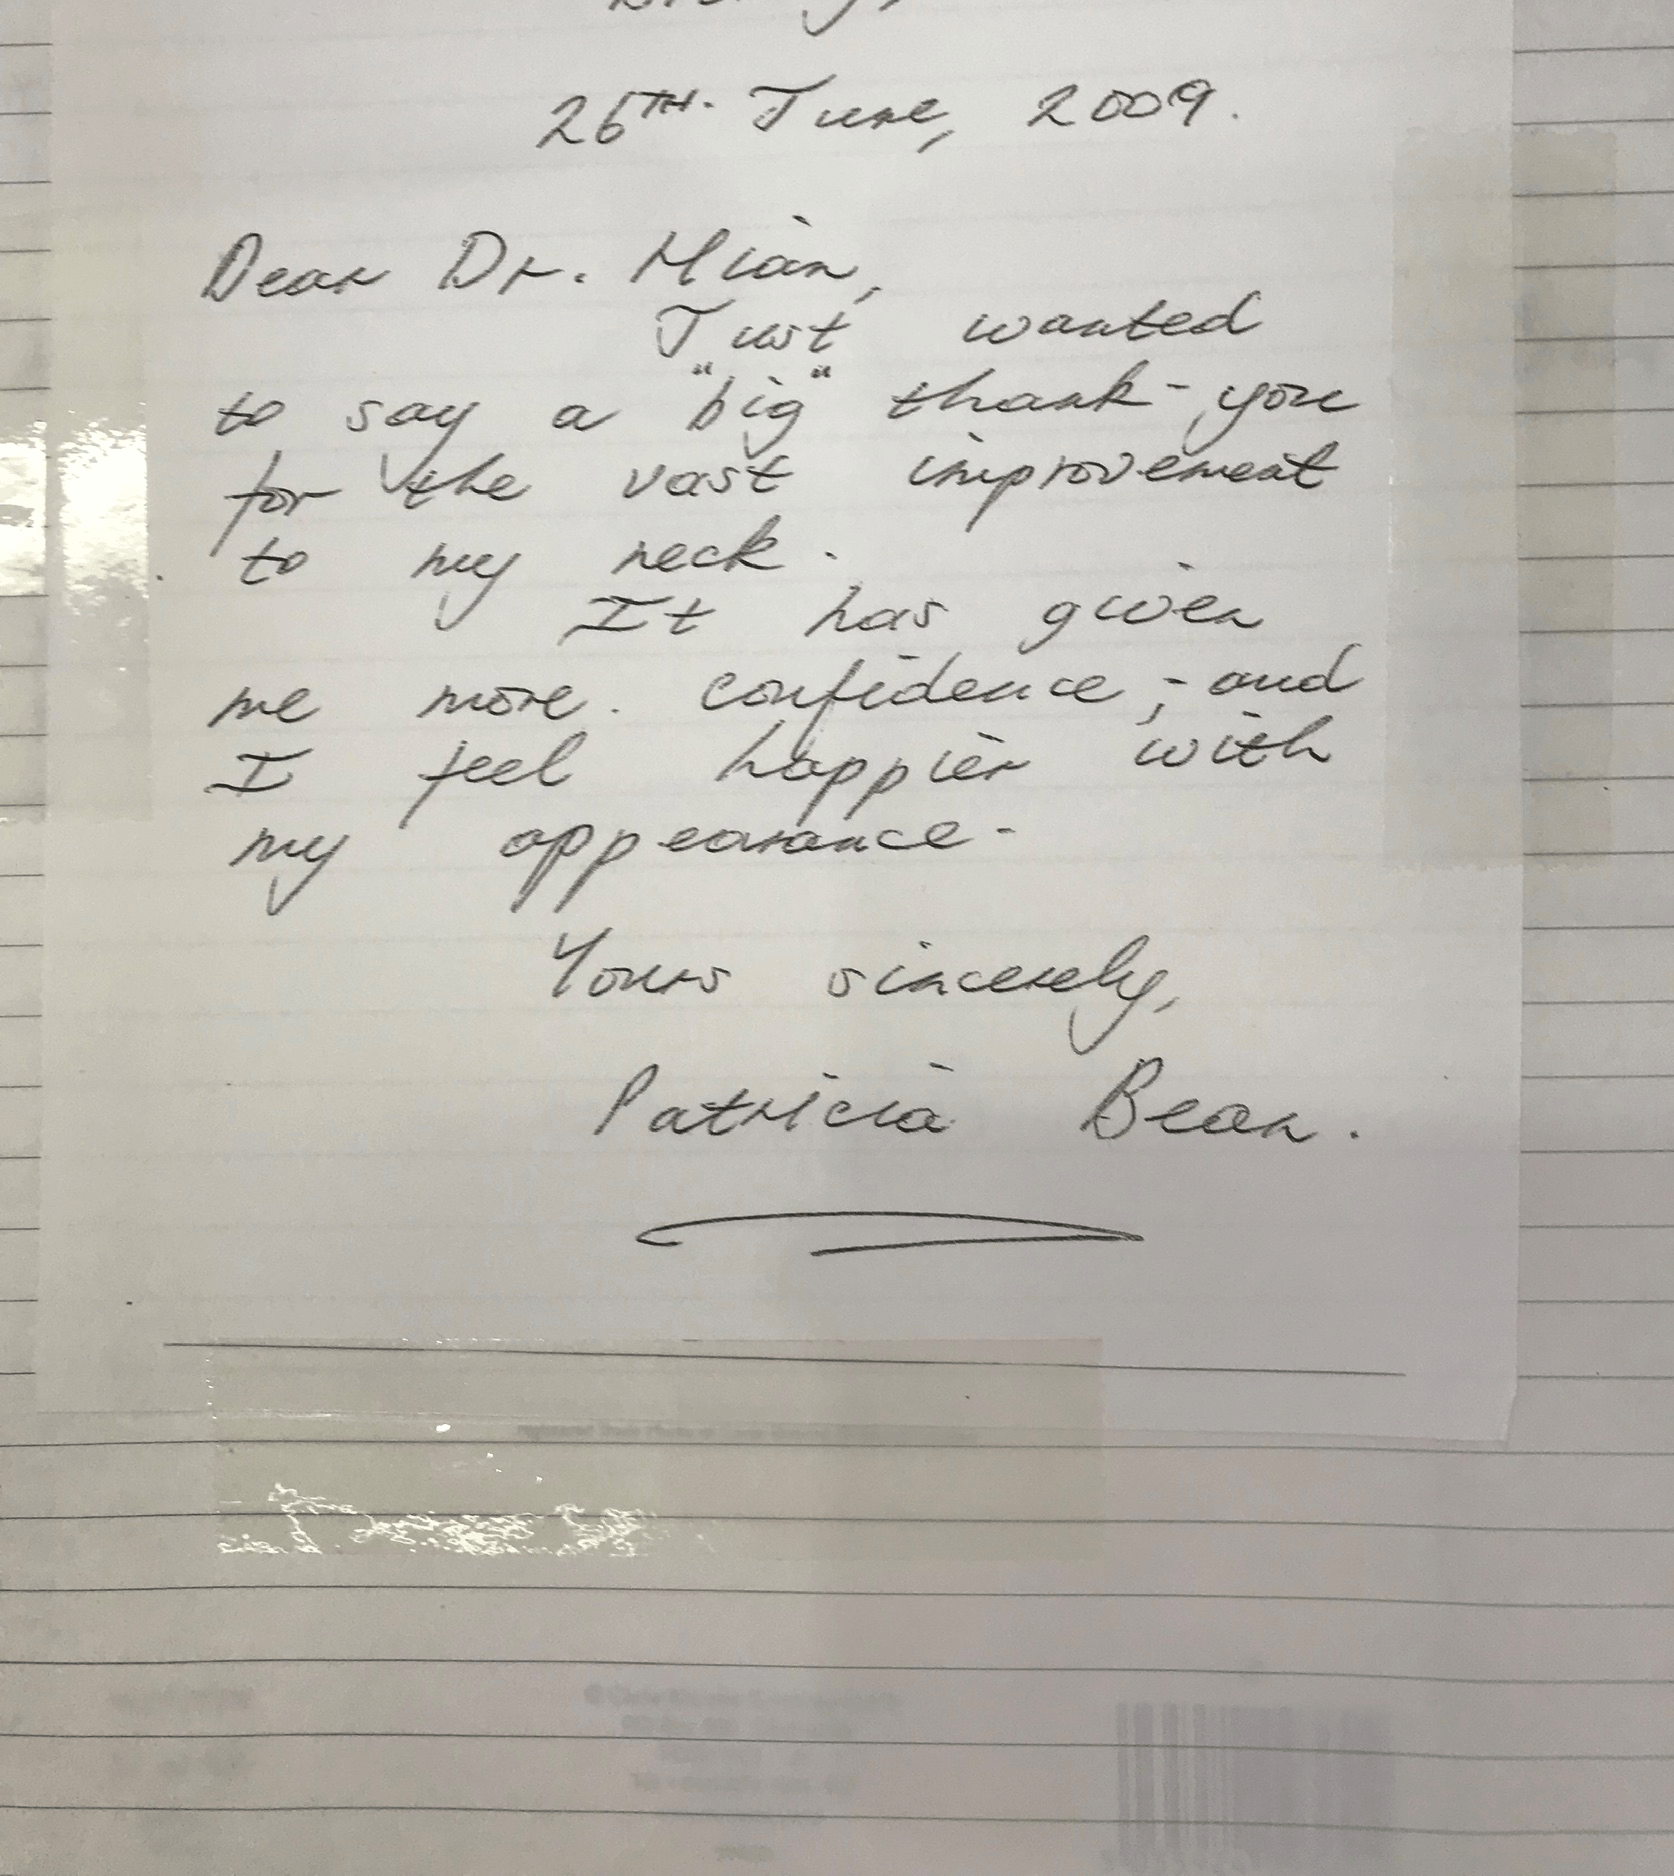 26TH. June, 2009.
Dear Dr. Mian,
Just wanted
to say a "big" thank-you
for the vast improvement
to my neck.
It has given
me more. confidence,- and
I feel happier with
my appearance-
Yours sincerely,
Patricia Bean.